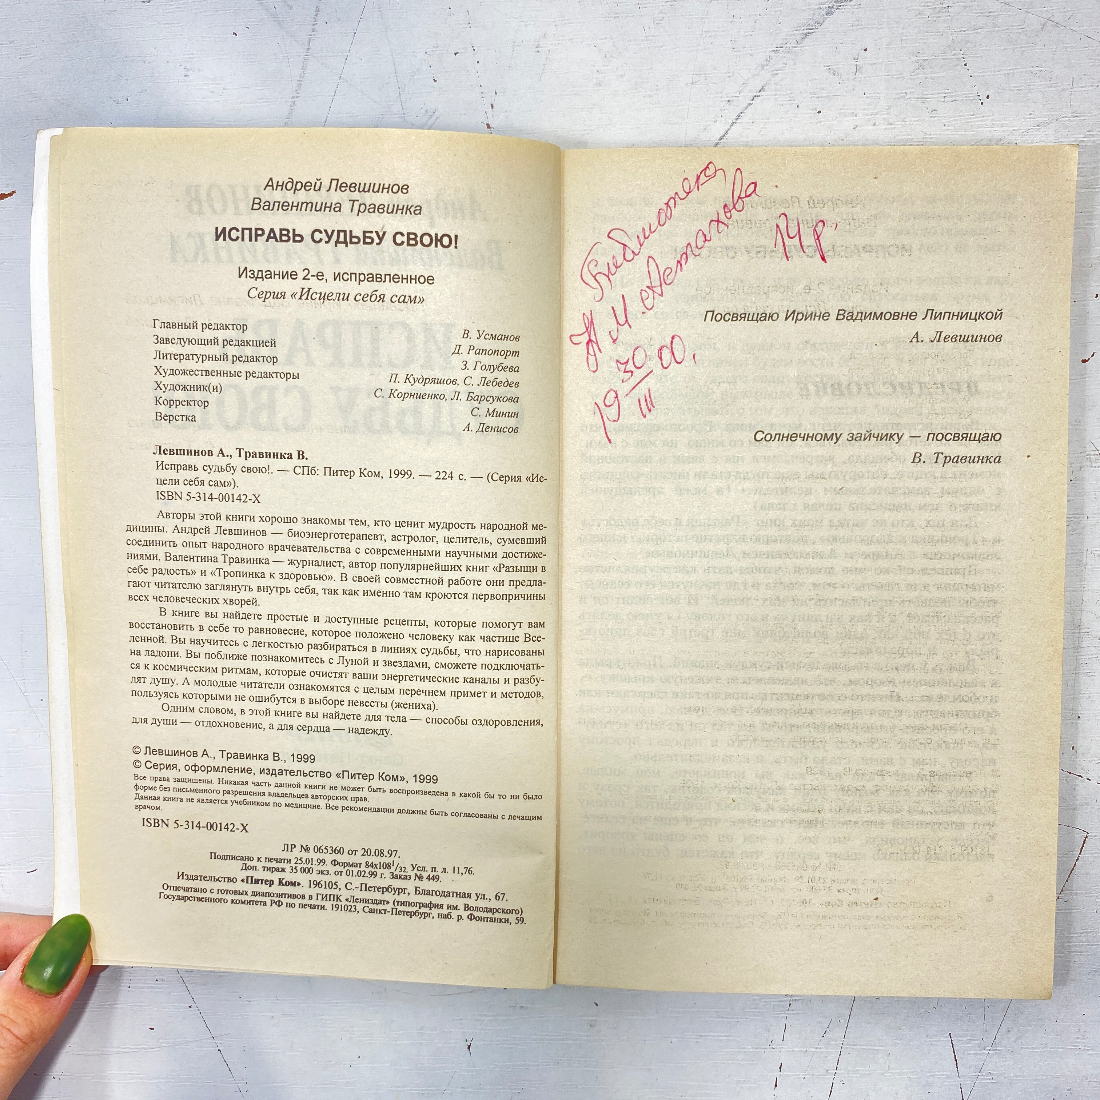 Андрей Левшинов
Валентина Травинка
ИСПРАВЬ СУДЬБУ СВОЮ!
Издание 2-е, исправленное
Серия «Исцели себя сам»
Главный редактор В. Усманов
Заведующий редакцией Д. Рапопорт
Литературный редактор З. Голубева
Художественные редакторы П. Кудряшов, С. Лебедев
Художник(и) С. Корниенко, Л. Барсукова
Корректор С. Минин
Верстка А. Денисов
Левшинов А., Травинка В.
Исправь судьбу свою!. — СПб: Питер Ком, 1999. — 224 с. — (Серия «Ис-
цели себя сам»).
ISBN 5-314-00142-X
Авторы этой книги хорошо знакомы тем, кто ценит мудрость народной ме-
дицины. Андрей Левшинов — биоэнерготерапевт, астролог, целитель, сумевший
соединить опыт народного врачевательства с современными научными достиже-
ниями. Валентина Травинка — журналист, автор популярнейших книг «Разыщи в
себе радость» и «Тропинка к здоровью». В своей совместной работе они предла-
гают читателю заглянуть внутрь себя, так как именно там кроются первопричины
всех человеческих хворей.
В книге вы найдете простые и доступные рецепты, которые помогут вам
восстановить в себе то равновесие, которое положено человеку как частице Все-
ленной. Вы научитесь с легкостью разбираться в линиях судьбы, что нарисованы
на ладони. Вы поближе познакомитесь с Луной и звездами, сможете подключать-
ся к космическим ритмам, которые очистят ваши энергетические каналы и разбу-
дят душу. А молодые читатели ознакомятся с целым перечнем примет и методов,
пользуясь которыми не ошибутся в выборе невесты (жениха).
Одним словом, в этой книге вы найдете для тела — способы оздоровления,
для души — отдохновение, а для сердца — надежду.
© Левшинов А., Травинка В., 1999
© Серия, оформление, издательство «Питер Ком», 1999
Все права защищены. Никакая часть данной книги не может быть воспроизведена в какой бы то ни было
форме без письменного разрешения владельцев авторских прав.
Данная книга не является учебником по медицине. Все рекомендации должны быть согласованы с лечащим
врачом.
ISBN 5-314-00142-X
ЛР № 065360 от 20.08.97.
Подписано к печати 25.01.99. Формат 84x108¹/32. Усл. п. л. 11,76.
Доп. тираж 35 000 экз. от 01.02.99 г. Заказ № 449.
Издательство «Питер Ком». 196105, С.-Петербург, Благодатная ул., 67.
Отпечатано с готовых диапозитивов в ГИПК «Лениздат» (типография им. Володарского)
Государственного комитета РФ по печати. 191023, Санкт-Петербург, наб. р. Фонтанки, 59.
Библиотека
М. Астахова
14 р.
19 30/III 00.
Посвящаю Ирине Вадимовне Липницкой
А. Левшинов
Солнечному зайчику — посвящаю
В. Травинка